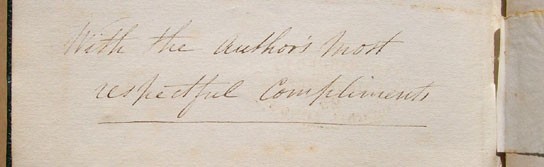 With the author's most
respectful Compliments